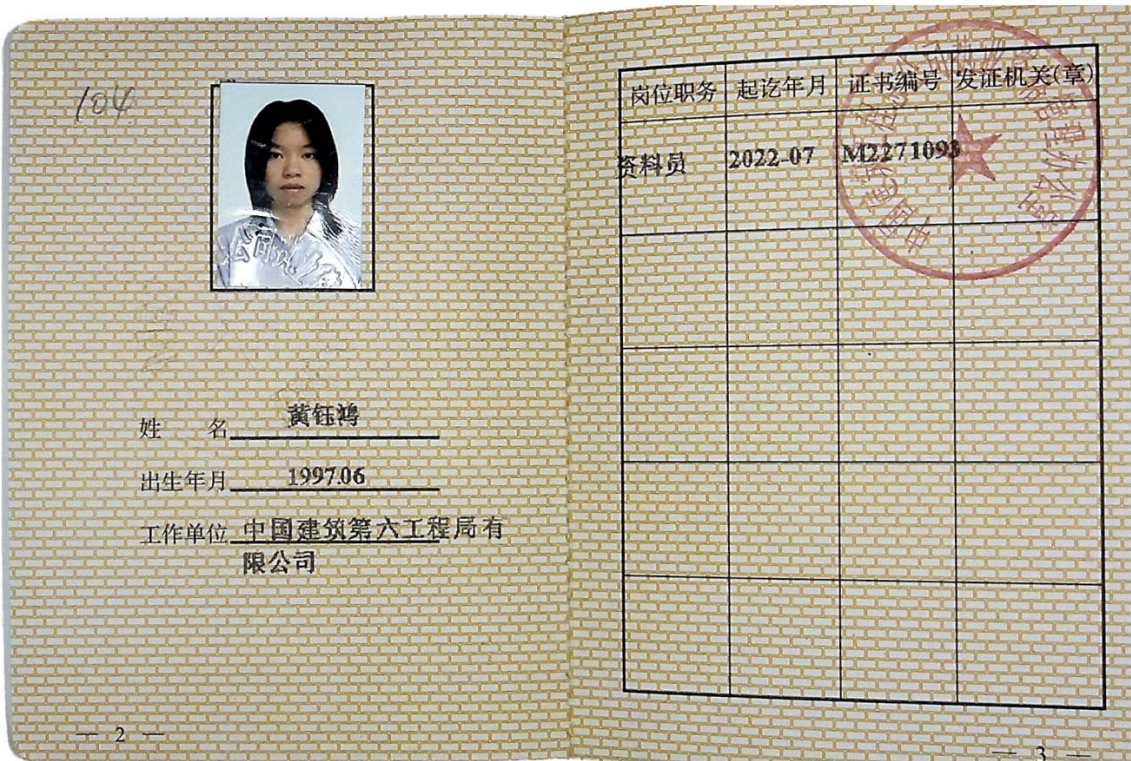 104
姓 名 黄钰鸿
出生年月 1997.06
工作单位 中国建筑第六工程局有
限公司
— 2 —
岗位职务 起讫年月 证书编号 发证机关(章)
资料员 2022-07 M2271093
— 3 —